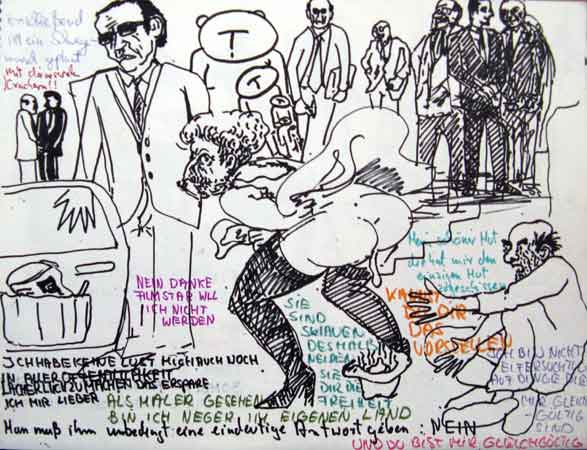 mit
NEIN DANKE
FILMSTAR WILL
ICH NICHT
WERDEN
Mein schöner Hut
der hat mir den
einzigen Hut
KANNST
DU DIR
DAS
VORSTELLEN
SIE
SIND
SKLAVEN
DESHALB
NEIDEN
SIE
DIR DIE
FREIHEIT
ICH BIN NICHT
EIFERSÜCHTIG
AUF DINGE DIE
MIR GLEICH-
GÜLTIG
SIND
ICH HABE KEINE LUST MICH AUCH NOCH
IN ALLER ÖFFENTLICHKEIT
LÄCHERLICH ZU MACHEN DAS ERSPARE
ICH MIR LIEBER
ALS MALER GESEHEN
BIN ICH NEGER IM EIGENEN LAND
Man muß ihm unbedingt eine eindeutige Antwort geben: NEIN
UND DU BIST MIR GLEICHGÜLTIG